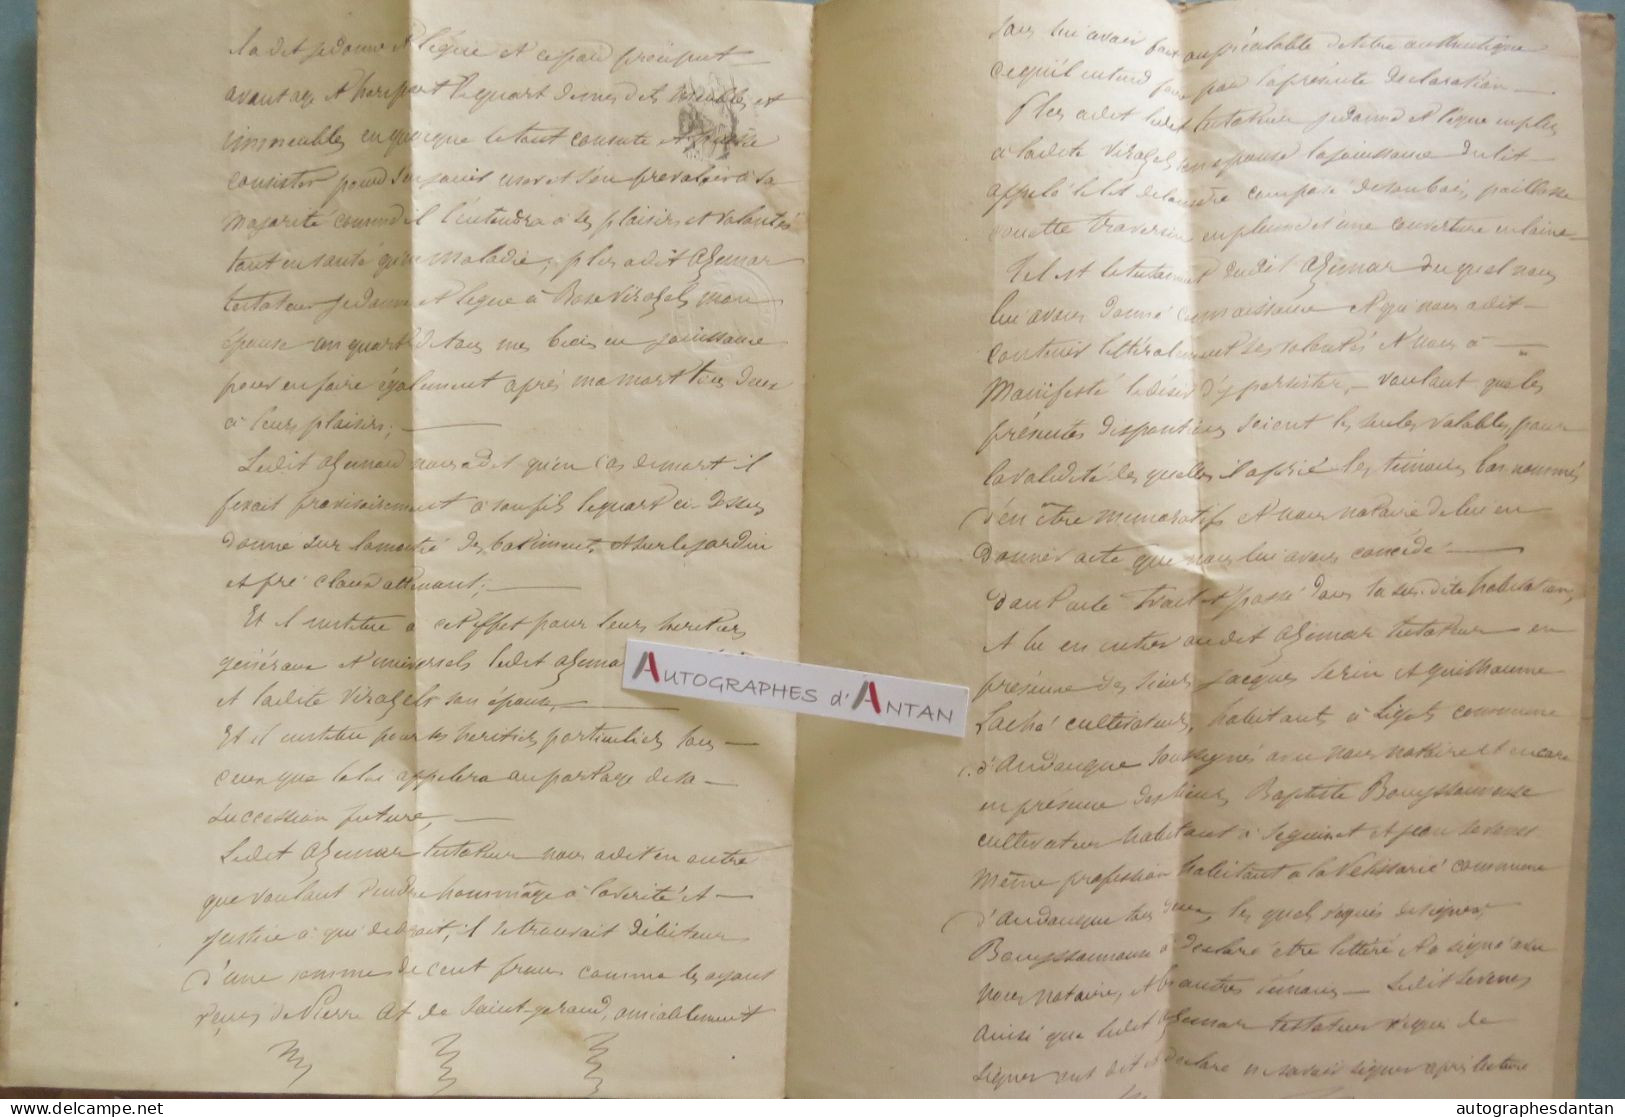 a dit je donne et lègue et ce par préciput
avantage et hors part le quart de mes dits meubles et
immeubles en quoi que le tout consiste et puisse
consister pour d'en jouir user et s'en prévaloir à sa
majorité comme il l'entendra à ses plaisirs et volontés
tant en santé qu'en maladie; plus a dit Azemar
testateur je donne et lègue à Rose Virazels mon
épouse un quart de tous mes biens en jouissance
pour en faire également après ma mort tous deux
à leurs plaisirs;
Ledit Azemar nous a dit qu'en cas de mort il
ferait provisoirement à son fils le quart ci-dessus
donné sur la moitié des batiments, et sur le jardin
et pré claux attenant;
Et il institue à cet effet pour leurs héritiers
généraux et universels ledit Azemar
et ladite Virazels son épouse,
Et il institue pour ses héritiers particuliers tous
ceux que la loi appelera au partage de sa
succession future,
Ledit Azemar testateur nous a dit en outre
que voulant rendre hommage à la vérité et
justice à qui de droit, il se trouvait débiteur
d'une somme de cent francs comme les ayant
reçus de Pierre et de Saint-géraud, amiablement
sans lui avoir fait au préalable de titre authentique
ce qu'il entend faire par la présente déclaration
Plus a dit ledit testateur je donne et lègue en plus
à ladite Virazels son épouse la jouissance du lit
appelé le lit de composé de son bois, paillasse
couette traversin en plume et une couverture en laine
Tel est le testament dudit Azemar duquel nous
lui avons donné connaissance et qu'il nous a dit
contenir littéralement ses volontés et nous a
manifesté le désir d'y persister, voulant que les
présentes dispositions soient les seules valables, pour
la validité des quelles il a prié les témoins bas nommés
d'en être mémoratifs et nous notaire de lui en
donner acte que nous lui avons concédé
Dont acte Fait et passé dans la susdite habitation,
et lu en entier audit Azemar testateur en
présence des sieurs Jacques Serin et Guilhaume
Laché cultivateurs, habitants à Ligots commune
d'Andouque soussignés avec nous notaire et encore
en présence des sieurs Baptiste Bouyssounouse
cultivateur habitant à Seguinet et Jean
même profession habitant à la commune
d'Andouque tous deux, les quels requis de signer,
Bouyssounouse a déclaré être lettré et a signé avec
nous notaire, et les autres témoins. Ledit
ainsi que ledit Azemar testateur requis de
signer ont dit et déclaré ne savoir signer après lecture
AUTOGRAPHES d'ANTAN
autographesdantan
delcampe.net